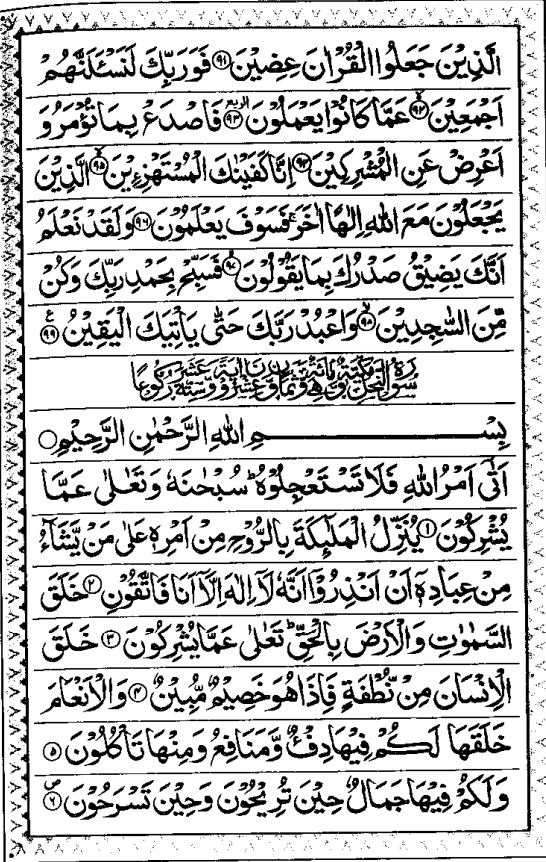 الَّذِيْنَ جَعَلُوا الْقُرْاٰنَ عِضِيْنَ ۝۹۱ فَوَرَبِّكَ لَنَسْـَٔلَنَّهُمْ
اَجْمَعِيْنَ ۝۹۲ عَمَّا كَانُوْا يَعْمَلُوْنَ ۝۹۳ فَاصْدَعْ بِمَا تُؤْمَرُ وَ
اَعْرِضْ عَنِ الْمُشْرِكِيْنَ ۝۹۴ اِنَّا كَفَيْنٰكَ الْمُسْتَهْزِءِيْنَ ۝۹۵ الَّذِيْنَ
يَجْعَلُوْنَ مَعَ اللّٰهِ اِلٰهًا اٰخَرَ ۚ فَسَوْفَ يَعْلَمُوْنَ ۝۹۶ وَلَقَدْ نَعْلَمُ
اَنَّكَ يَضِيْقُ صَدْرُكَ بِمَا يَقُوْلُوْنَ ۝۹۷ فَسَبِّحْ بِحَمْدِ رَبِّكَ وَكُنْ
مِّنَ السّٰجِدِيْنَ ۝۹۸ وَاعْبُدْ رَبَّكَ حَتّٰى يَاْتِيَكَ الْيَقِيْنُ ۝۹۹
سُوْرَةُ النَّحْلِ مَكِّيَّةٌ وَّهِيَ مِائَةٌ وَّثَمَانٍ وَّعِشْرُوْنَ اٰيَةً وَّسِتَّةَ عَشَرَ رُكُوْعًا
بِسْمِ اللّٰهِ الرَّحْمٰنِ الرَّحِيْمِ
اَتٰٓى اَمْرُ اللّٰهِ فَلَا تَسْتَعْجِلُوْهُ ؕ سُبْحٰنَهٗ وَتَعٰلٰى عَمَّا
يُشْرِكُوْنَ ۝۱ يُنَزِّلُ الْمَلٰٓئِكَةَ بِالرُّوْحِ مِنْ اَمْرِهٖ عَلٰى مَنْ يَّشَآءُ
مِنْ عِبَادِهٖۤ اَنْ اَنْذِرُوْۤا اَنَّهٗ لَاۤ اِلٰهَ اِلَّاۤ اَنَا فَاتَّقُوْنِ ۝۲ خَلَقَ
السَّمٰوٰتِ وَالْاَرْضَ بِالْحَقِّ ؕ تَعٰلٰى عَمَّا يُشْرِكُوْنَ ۝۳ خَلَقَ
الْاِنْسَانَ مِنْ نُّطْفَةٍ فَاِذَا هُوَ خَصِيْمٌ مُّبِيْنٌ ۝۴ وَالْاَنْعَامَ
خَلَقَهَا لَكُمْ فِيْهَا دِفْءٌ وَّمَنَافِعُ وَمِنْهَا تَاْكُلُوْنَ ۝۵
وَلَكُمْ فِيْهَا جَمَالٌ حِيْنَ تُرِيْحُوْنَ وَحِيْنَ تَسْرَحُوْنَ ۝۶